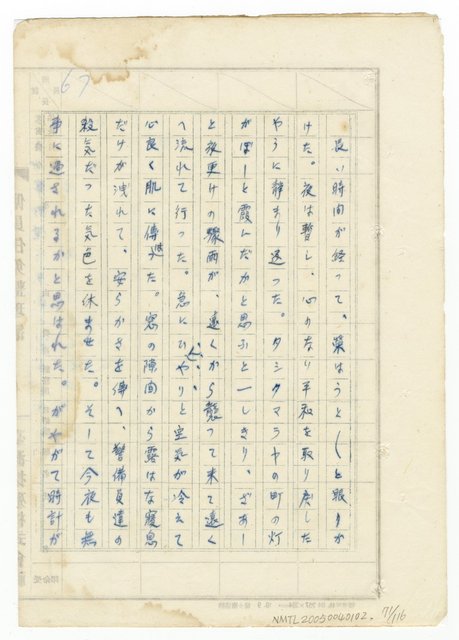 67
長い時間が経って、葉はうと〳〵と眠りか
けた。夜は暫し、心のなり平和を取り戻した
やうに静まり返った。タシタマラヤの町の灯
がぼーと霞んだかと思ふと一しきり、ざあー
と夜更けの驟雨が、遠くから襲って来て遠く
へ流れて行った。急にひやりと空気が冷えて
心良く肌に傳はった。窓の隙間から露はな寝息
だけが洩れて、安らかさを傳へ、警備員達の
殺気だった気色を休ませた。そして今夜も無
事に過されるかと思はれた。がやがて時計が
NMTL20050040102. 71/116